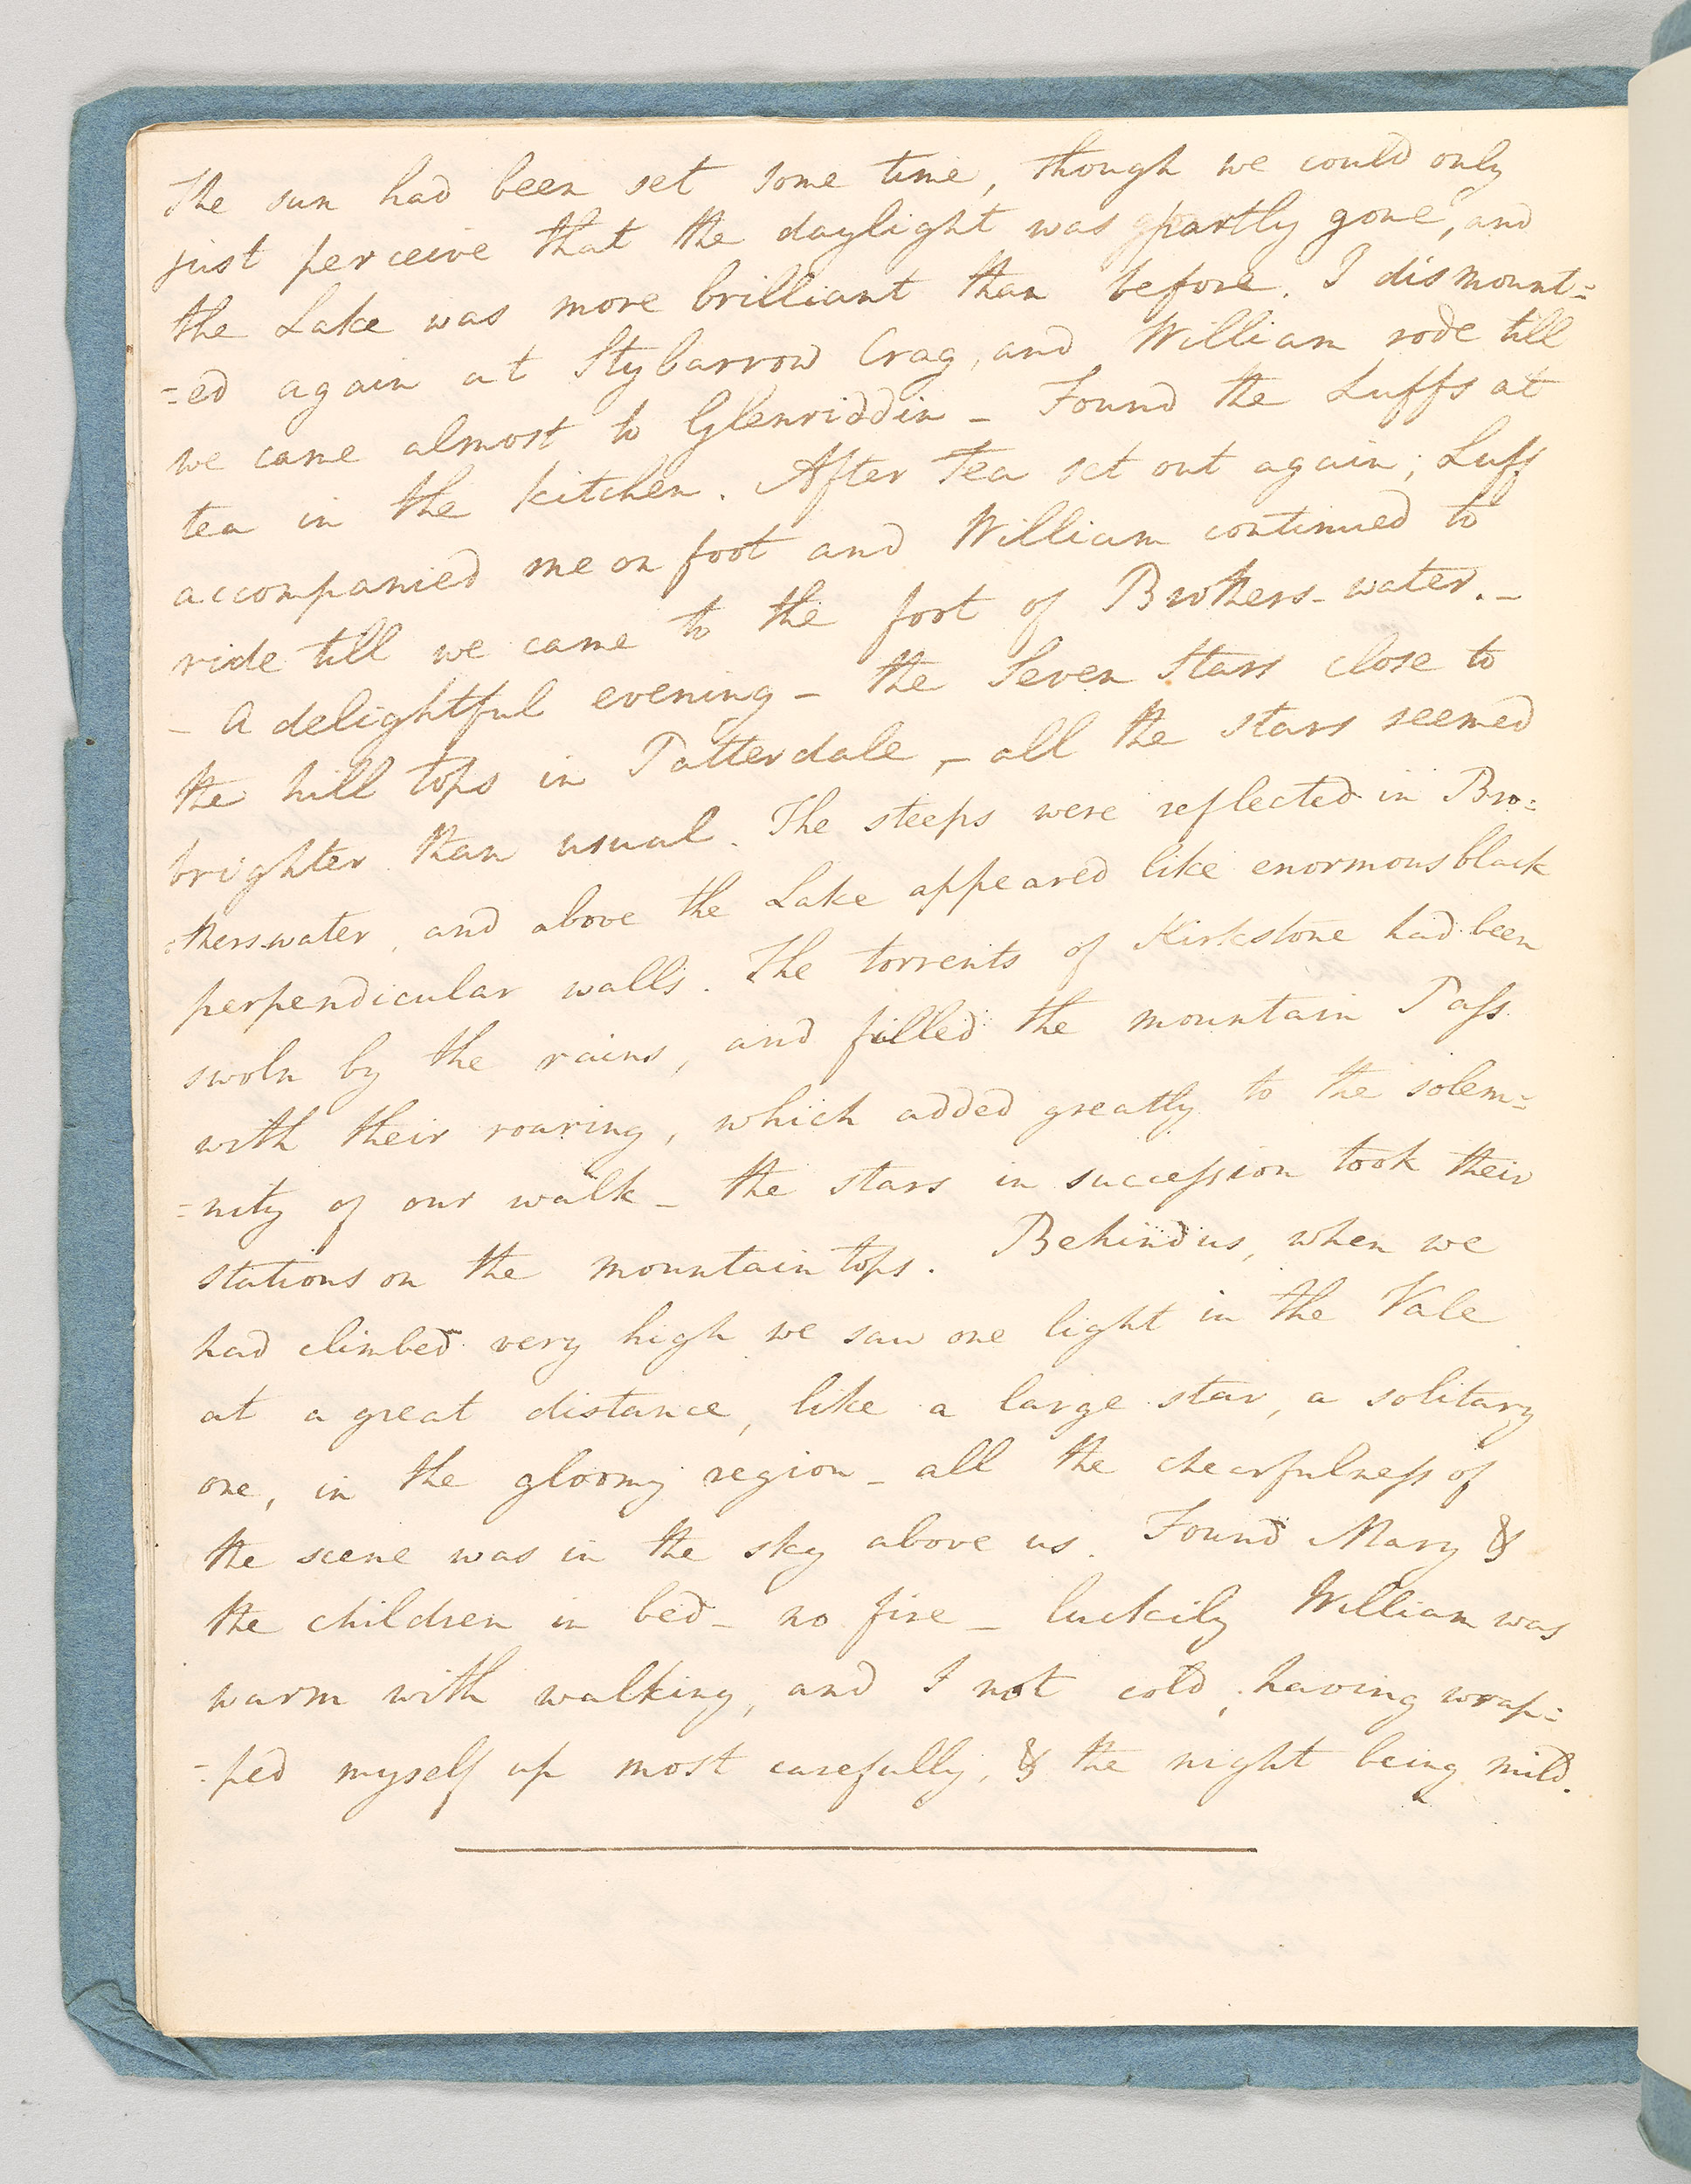 The sun had been set some time, though we could only
just perceive that the daylight was partly gone, and
the Lake was more brilliant than before. I dismount=
=ed again at Stybarrow Crag, and William rode till
we came almost to Glenriddin – Found the Luffs at
tea in the kitchen. After Tea set out again; Luff
accompanied me on foot and William continued to
ride till we came to the foot of Brothers-water. –
– A delightful evening – the Seven Stars close to
the hill tops in Patterdale, – all the stars seemed
brighter than usual. The steeps were reflected in Bro=
=therswater, and above the Lake appeared like enormous black
perpendicular walls. The torrents of Kirkstone had been
swoln by the rains, and filled the mountain Paſs
with their roaring, which added greatly to the solem=
=nity of our walk – the stars in succeſsion took their
stations on the mountain tops. Behind us, when we
had climbed very high we saw one light in the Vale
at a great distance, like a large star, a solitary
one, in the gloomy region – all the chearfulneſs of
the scene was in the sky above us. Found Mary &
the children in bed – no fire – luckily William was
warm with walking, and I not cold, having wrap=
=ped myself up most carefully, & the night being mild.